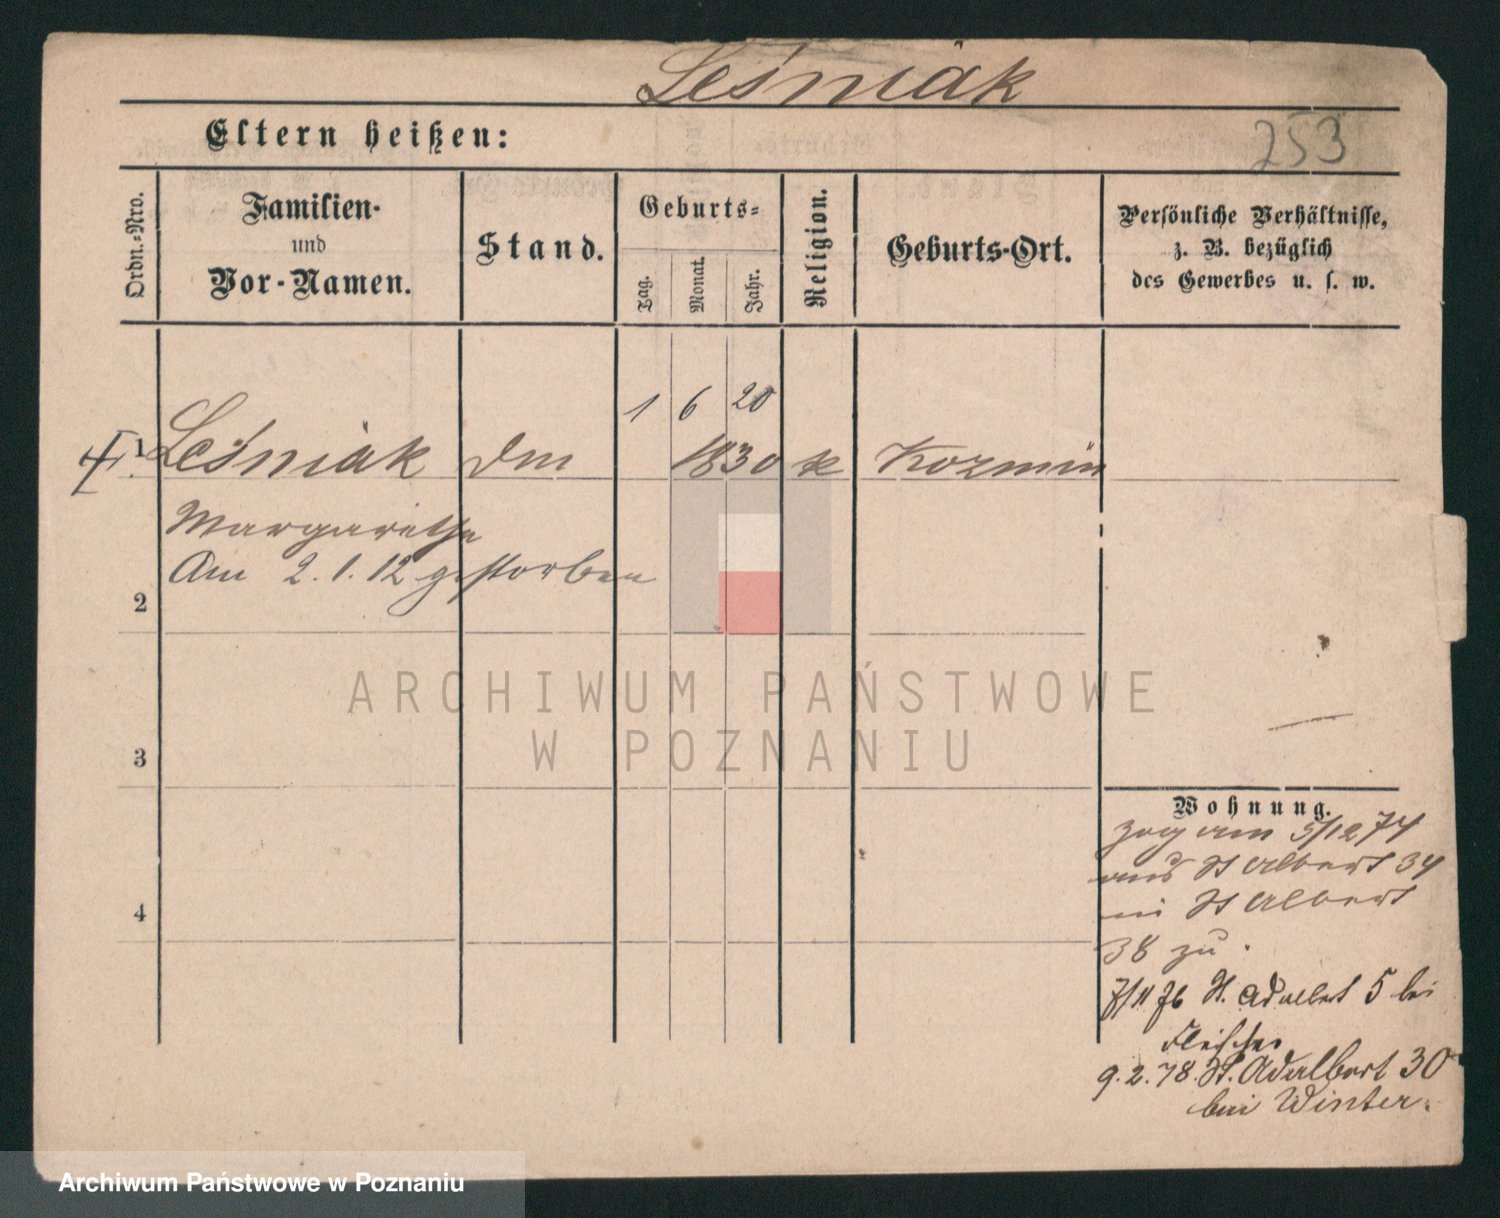 Leśniak
Eltern heißen:
253
Ordn.-Nro.
Familien-
und
Vor-Namen.
Stand.
Geburts-
Tag.
Monat.
Jahr.
Religion.
Geburts-Ort.
Persönliche Verhältnisse,
z. B. bezüglich
des Gewerbes u. s. w.
1 6 20
1 Leśniak 1830 k Kozmin
Margarethe
Am 2.1.12 gestorben
2
3
4
ARCHIWUM PAŃSTWOWE
W POZNANIU
Wohnung.
zog am 5/12 74
aus St Albert 34
in St Albert
38 zu.
7/11 76 St. Adalbert 5 bei
Fleischer
9.2.78. St. Adalbert 30
bei Winter.
Archiwum Państwowe w Poznaniu